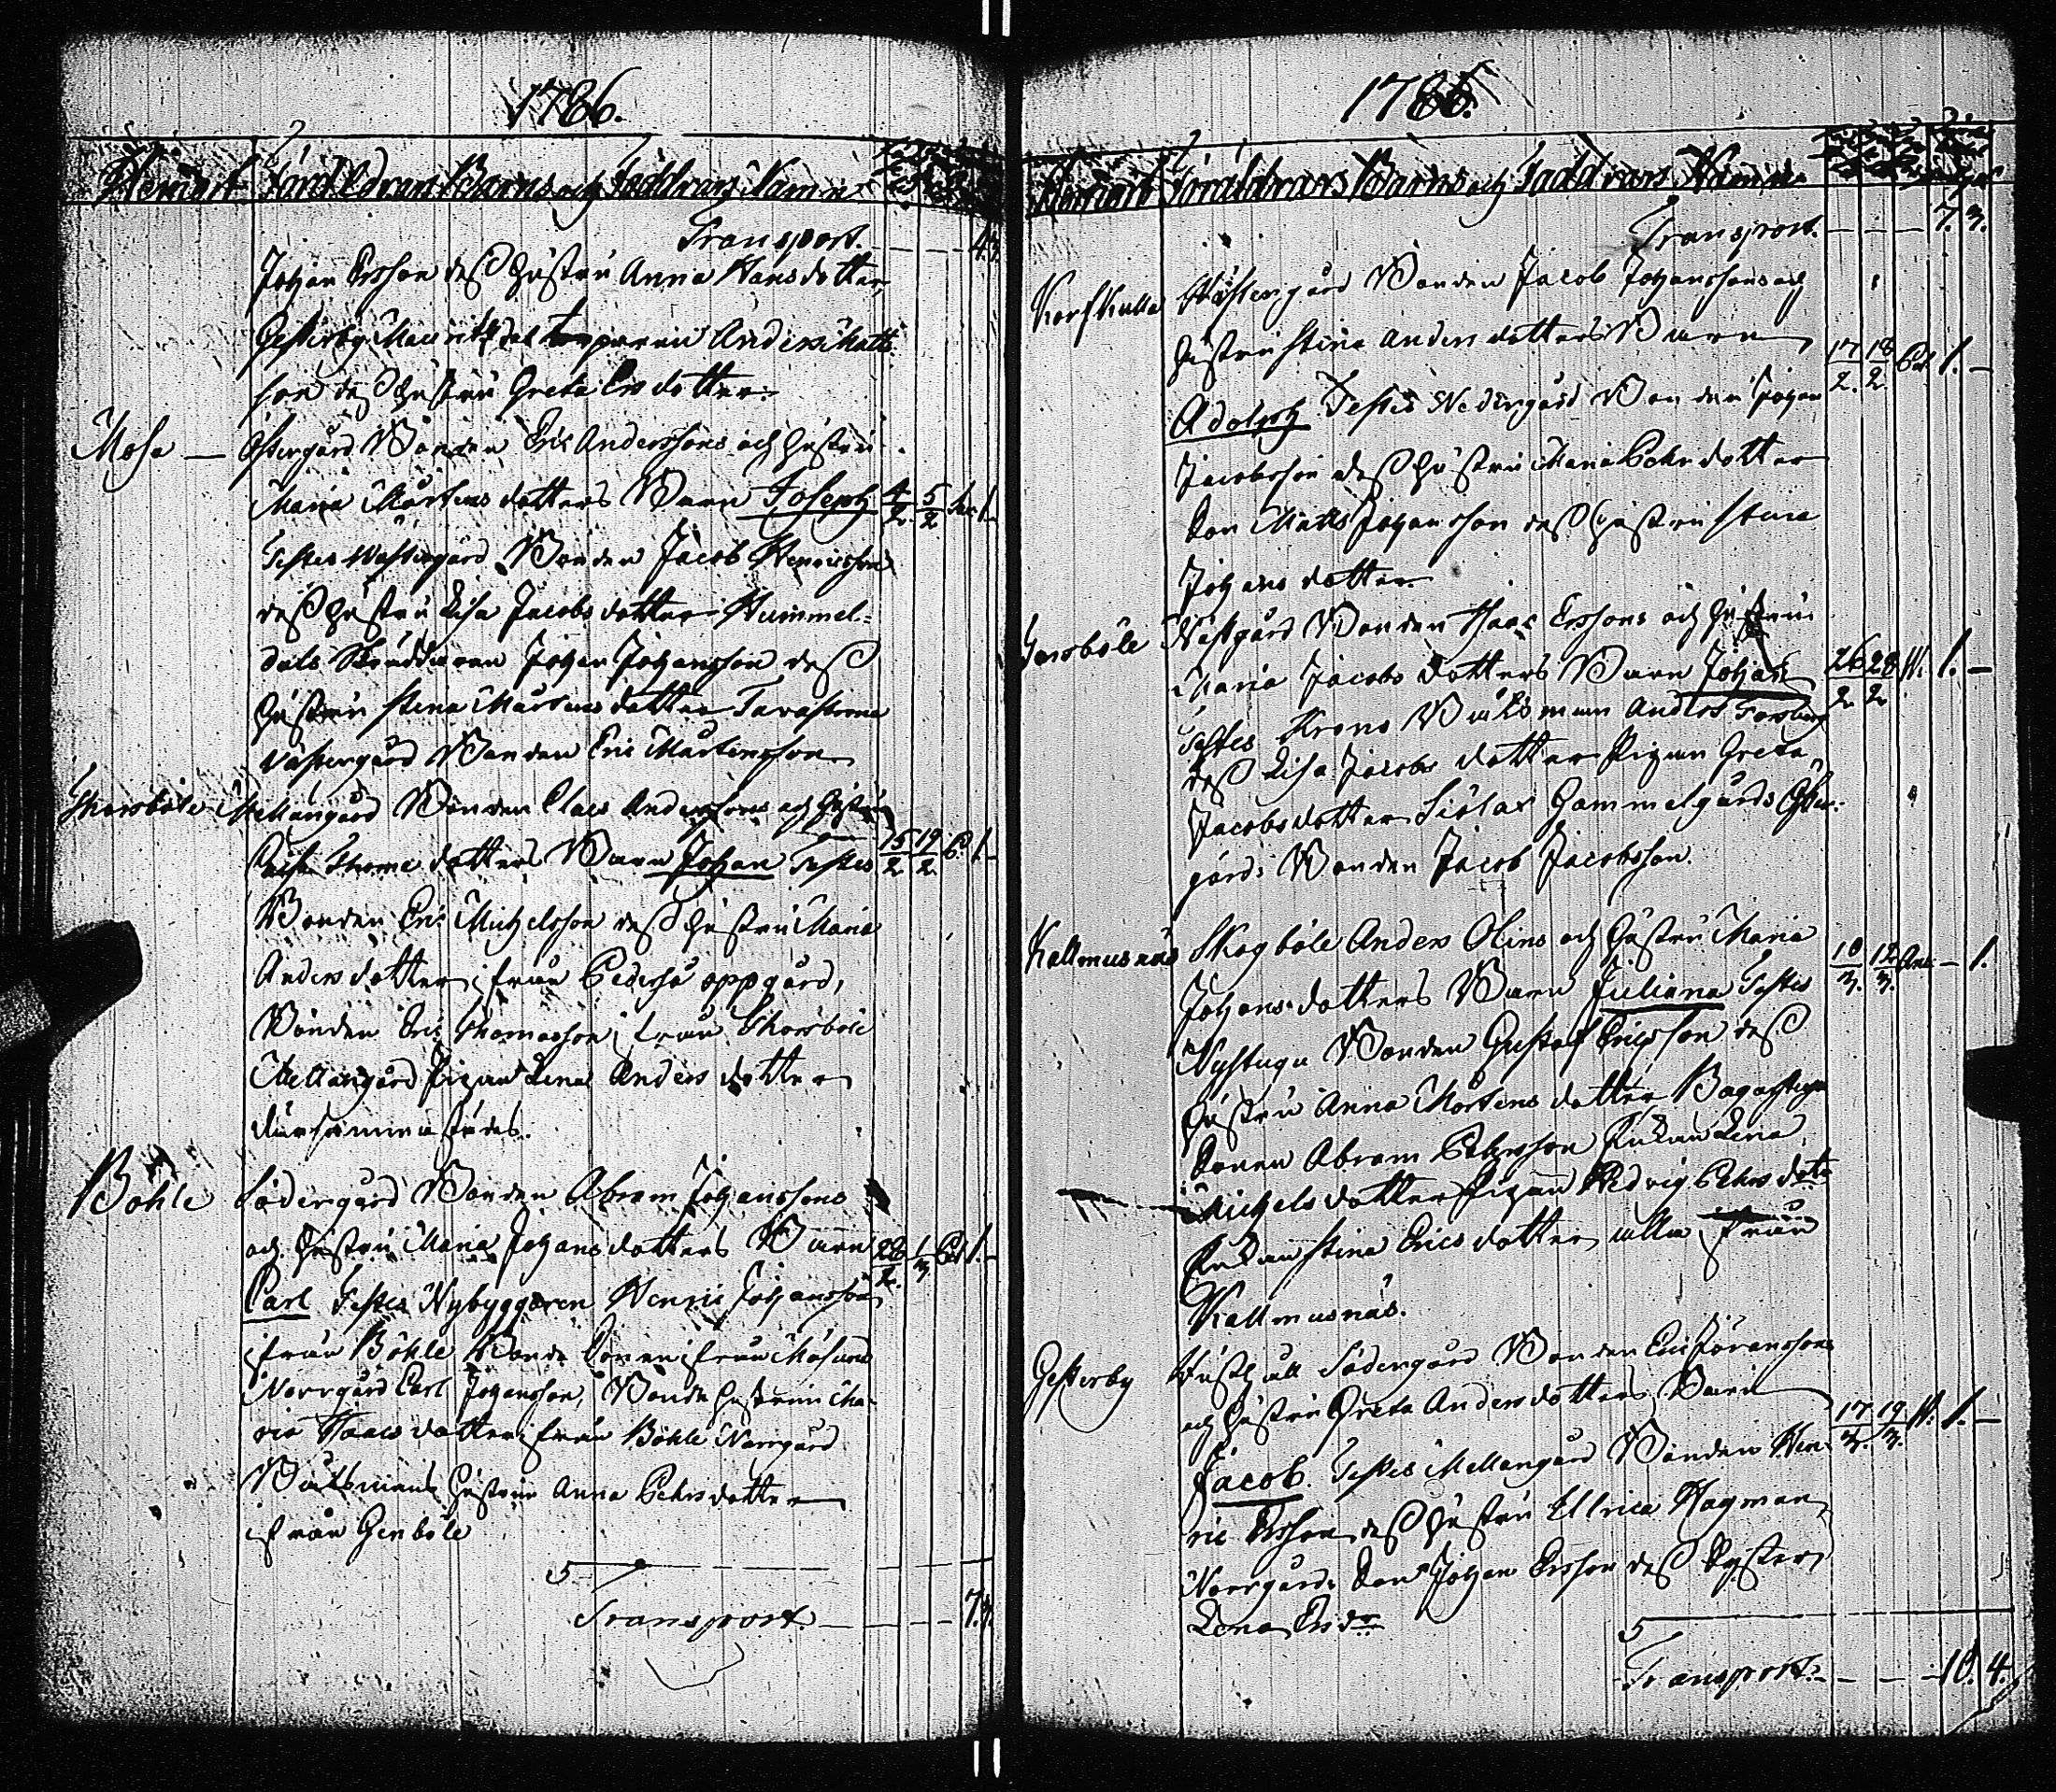 1786.
Hemort Föräldrars Barns och Faddrars Namn
Transport. 4. 3.
Johan Ersson dess hustru Anna Hansdotter,
Gesterby Anders Matts
son dess hustru Greta Ersdotter.
Mosa Östergård Bonden Eric Anderssons och hustru
Maria Mårtens dotters Barn Joseph 4/2 5/2 1. –
Testes Wästergård Bonden Jacob Henricsson
dess hustru Lisa Jacobs dotter Hummel-
dals Johan Johansson dess
hustru Stina Mårtens dotter
Västergård Bonden Eric Mårtensson
Thorsböle Mellangård Bonden Claes Anderssons och hustru
Thome dotters Barn Johan Testes 15/2 19/2 P. 1. –
Bonden Eric Michelsson dess hustru Maria
Anders dotter ifrån Pederså oppgård,
Bonden Eric Thomasson ifrån Thorsböle
Mellangård Pigan Lena Anders dotter
därsammastädes.
Böhle Södergård Bonden Abram Johanssons
och hustru Maria Johansdotters Barn 28/2 1/3 1. –
Carl Testes Nybyggaren Henric Johansson
ifrån Böhle Bonde Sonen ifrån
Norrgård Carl Johansson, Bonde hustrun Ma-
ria dotter ifrån Böhle Norrgård
Båtsmans hustrun Anna Pehrsdotter
ifrån Genböle
5
Transport. 7. 3.
1786.
Hemort Föräldrars Barns och Faddrars Namn
Transport. 7. 3.
Korfkulla Wästergård Bonden Jacob Johanssons och
hustru Stina Anders dotters Barn 17/2 18/2 1. –
Adolph Testes Nedergård Bonden Johan
Jacobsson dess hustru Maria Pehrsdotter
Son Matts Johansson dess hustru Stina
Johans dotter.
Wästgård Bonden Erssons och hustru
Maria Jacobs dotters Barn Johan 26/2 28/2 W. 1. –
Testes Krono Båtsman Anders Forsberg
dess Lisa Jacobs dotter Pigan Greta
Jacobsdotter Siölax Gammelgårds
gårds Bonden Jacob Jacobsson.
Kallmusnäs Skogböle Anders Olins och hustru Maria
Johans dotters Barn Juliana Testes 10/3 12/3 – 1.
Nystugu Bonden Gustaf Ericsson dess
hustru Anna Mårtens dotter
Sonen Abram Pehrsson Enkan Lena
Michels dotter Pigan Hedvig Pehrs dotr
Enkan Stina Erics dotter alla ifrån
Kallmusnäs.
Gesterby Södergård Bonden Eric Göranssons
och hustru Greta Anders dotters Barn 17/3 19/3 W. 1. –
Jacob. Testes Mellangård Bonden Hen-
ric Ersson dess hustru Ullrica Hagman
Norrgårds Son Johan Ersson dess Syster
Lena Ersdr
5
Transport. 10. 4.